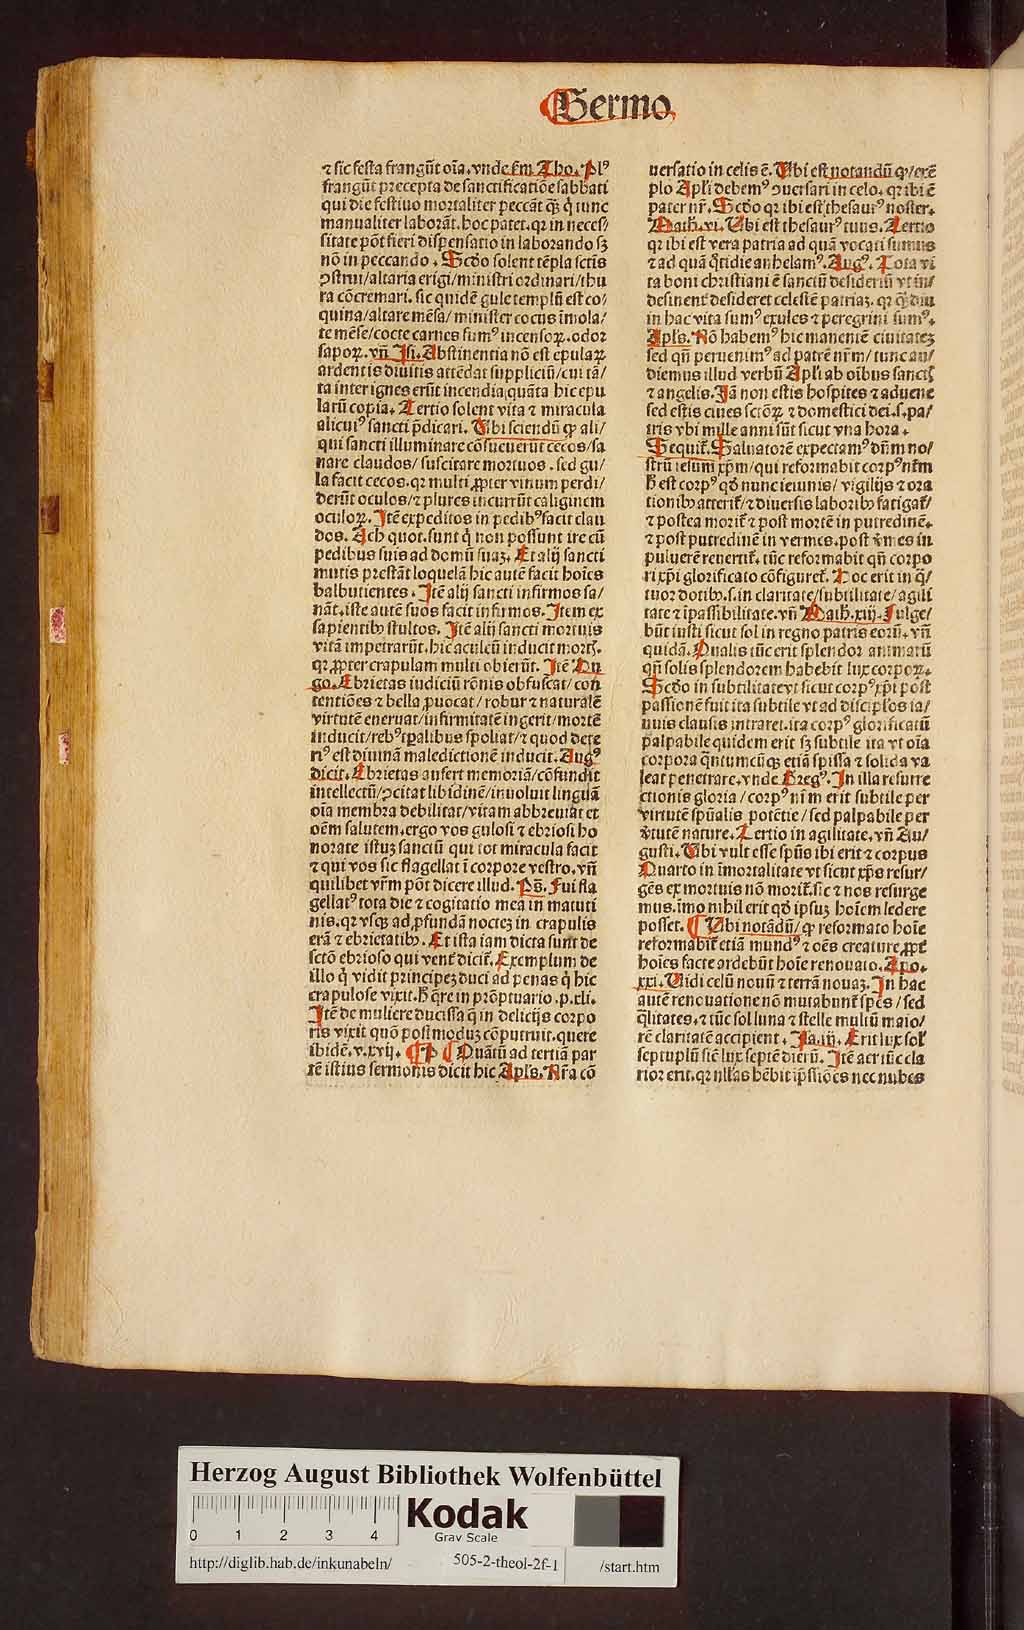 Sermo
⁊ sic festa frangūt oīa. vnde s̄m Tho. Plꝰ
frangūt precepta de sanctificatiōe sabbati
qui die festiuo mortaliter peccāt qȝ q̇ tunc
manualiter laborāt. hoc patet. qꝛ in neces/
sitate pōt fieri dispensatio in laborando sȝ
nō in peccando. Scd̄o solent tēpla sctis
ꝯstrui/altaria erigi/ministri ordinari/thu
ra cōcremari. sic quidē gule templū est co/
quina/altare mēsa/minister cocus īmola/
te mēse/cocte carnes fumꝰ incensoꝝ. odor
sapoꝝ. vn̄ Isi. Abstinentia nō est epularꝝ
ardentis diuitis attēdat suppliciū/cui tā/
ta inter ignes erūt incendia quāta hic epu
larū copia. Tertio solent vita ⁊ miracula
alicuiꝰ sancti p̄dicari. Vbi sciendū ꝙ ali/
qui sancti illuminare cōsueuerūt cecos/sa
nare claudos/suscitare mortuos. sed gu/
la facit cecos. qꝛ multi ꝓpter vinum perdi/
derūt oculos/⁊ plures incurrūt caliginem
oculoꝝ. Itē expeditos in pedibꝰ facit clau
dos. Ach quot. sunt q̇ nō possunt ire cū
pedibus suis ad domū suaȝ. Et alij sancti
mutis prestāt loquelā hic autē facit hoīes
balbutientes. Itē alij sancti infirmos sa/
nāt. iste autē suos facit infirmos. Item ex
sapientibꝰ stultos. Itē alij sancti mortuis
vitā impetrarūt. hic aculeū inducit mortꝭ.
qꝛ ꝓpter crapulam multi obierūt. Itē Au
go. Ebrietas iudiciū rōnis obfuscat/con
tentiōes ⁊ bella ꝓuocat/robur ⁊ naturalē
virtutē eneruat/infirmitatē ingerit/mortē
inducit/rebꝰ tꝑalibus spoliat/⁊ quod dete
riꝰ est diuinā maledictionē inducit. Augꝰ
dicit. Ebrietas aufert memoriā/cōfundit
intellectū/ꝯcitat libidinē/inuoluit linguā
oīa membra debilitat/vitam abbreuiat et
oēm salutem. ergo vos gulosi ⁊ ebriosi ho
norate istuȝ sanctū qui tot miracula facit
⁊ qui vos sic flagellat ī corpore vestro. vn̄
quilibet vr̄m pōt dicere illud. Ps̄. Fui fla
gellatꝰ tota die ⁊ cogitatio mea in matuti
nis. qꝛ vsqȝ ad ꝓfundā nocteȝ in crapulis
erā ⁊ ebrietatibꝰ. Et ista iam dicta sunt de
sctō ebrioso qui venť dicit̄. Exemplum de
illo q̇ vidit principeȝ duci ad penas q̇ hic
crapulose vixit. H̄ q̄re in prōptuario. p. xli.
Itē de muliere ducissa q̄ in delicijs corpo
ris vixit quō postmoduȝ cōputruit. quere
ibidē. v. xxvij. ¶ P ¶ Quātū ad tertiā par
tē istius sermonis dicit hic Apls̄. Nr̄a cō
uersatio in celis ē. Vbi est notandū ꝙ/exē
plo Apl̄i debemꝰ ꝯuersari in celo. qꝛ ibi ē
pater nr̄. Scd̄o qꝛ ibi est thesaurꝰ noster.
Math. vi. Vbi est thesaurꝰ tuus. Tertio
qꝛ ibi est vera patria ad quā vocati sumus
⁊ ad quā q̄tidie anhelamꝰ. Augꝰ. Tota vi
ta boni christiani ē sanctū desideriū vt
desinent desideret celestē patriaȝ. qꝛ q̄ diu
in hac vita sumꝰ exules ⁊ peregrini sumꝰ.
Apls̄. Nō habemꝰ hic manentē ciuitateȝ
sed qn̄ peruenimꝰ ad patrē nr̄m/tunc au/
diemus illud verbū Apl̄i ab oībus sanctꝭ
⁊ angelis. Iā non estis hospites ⁊ aduene
sed estis ciues sctōꝝ ⁊ domestici dei. s. pa/
tris vbi mille anni sūt sicut vna hora.
Sequit̄. Saluatorē expectamꝰ dn̄m no/
strū iesum xp̄m/qui reformabit corpꝰ nr̄m
H̄ est corpꝰ qd̄ nunc ieiunis/vigilijs ⁊ ora
tionibꝰ atterit̄/⁊ diuersis laboribꝰ fatigat̄/
⁊ postea morit̄ ⁊ post mortē in putredinē.
⁊ post putredinē in vermes. post v̄mes in
puluerē reuertit̄. tūc reformabit qn̄ corpo
ri xp̄i glorificato cōfiguret̄. Hoc erit in q̄/
tuor dotibꝰ. s. in claritate/subtilitate/agili
tate ⁊ īpassibilitate. vn̄ Math. xiij. Fulge/
būt iusti sicut sol in regno patris eorū. vn̄
quidā. Qualis tūc erit splendor animarū
qn̄ solis splendorem habebit lux corpoꝝ.
Scd̄o in subtilitate vt sicut corpꝰ xp̄i post
passionē fuit ita subtile vt ad discipl̄os ia/
nuis clausis intraret. ita corpꝰ glorificatū
palpabile quidem erit sȝ subtile ita vt oīa
corpora q̄ntumcūqȝ etiā spissa ⁊ solida va
leat penetrare. vnde Gregꝰ. In illa resurre
ctionis gloria/corpꝰ nr̄m erit subtile per
virtutē spūalis potētie/sed palpabile per
v̄tutē nature. Tertio in agilitate. vn̄ Au/
gusti. Vbi vult esse spūs ibi erit ⁊ corpus
Quarto in īmortalitate vt sicut xp̄s resur/
gēs ex mortuis nō morit̄. sic ⁊ nos resurge
mus. īmo nihil erit qd̄ ipsuȝ hoīem ledere
posset. ¶ Vbi notādū/ꝙ reformato hoīe
reformabit̄ etiā mundꝰ ⁊ oēs creature ꝓpt̄
hoīes facte ardebūt hoīe renouato. Apo.
xxi. Vidi celū nouū ⁊ terrā nouaȝ. In hac
autē renouatione nō mutabunt̄ spēs/sed
q̄litates. ⁊ tūc sol luna ⁊ stelle multū maio/
rē claritatē accipient. Isa. iij. Erit lux sol̄
septuplū sic̄ lux septē dierū. Itē aer tūc cla
rior erit. qꝛ nll̄as hēbit ip̄ssiōes nec nubes
Herzog August Bibliothek Wolfenbüttel
0 1 2 3 4
Kodak
Gray Scale
http://diglib.hab.de/inkunabeln/
505-2-theol-2f-1
/start.htm